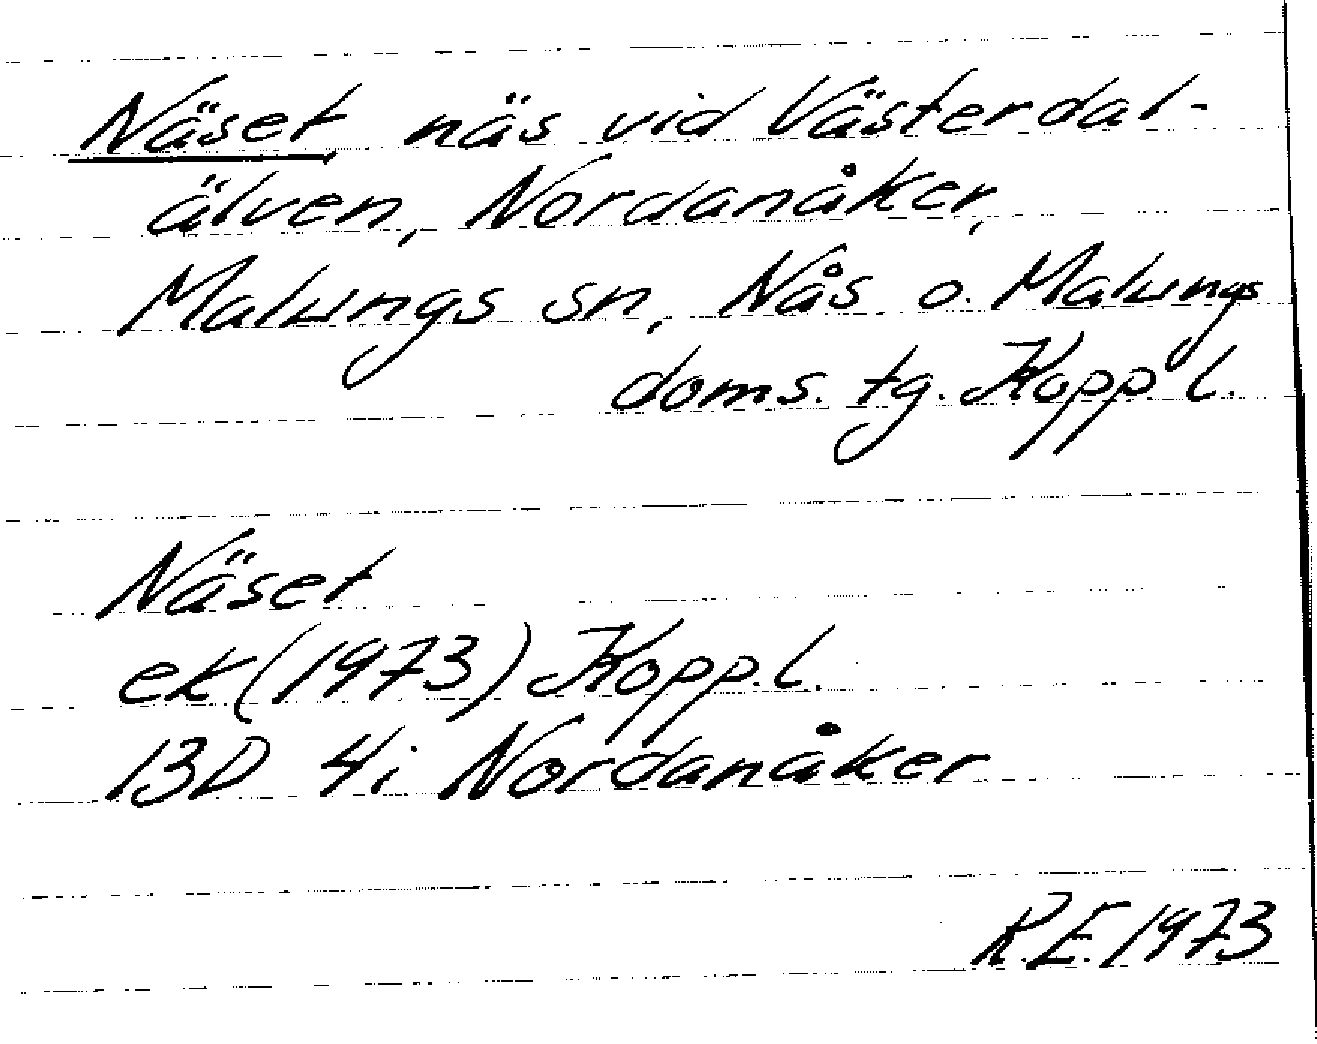 Näset, näs vid Västerdal-
älven, Nordanåker,
Malungs sn, Nås o. Malungs
doms. tg. Kopp l.
Näset
ek (1973) Kopp. l.
13D 4i Nordanåker
R.E. 1973